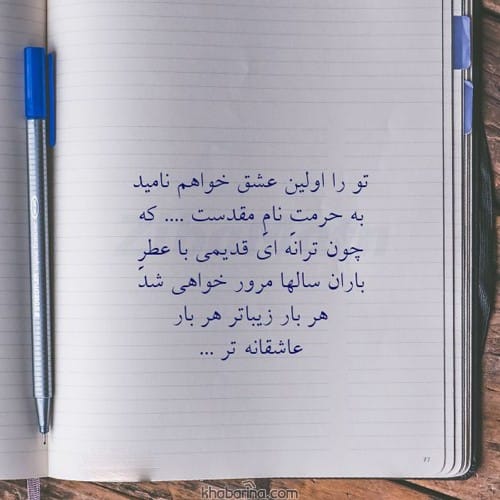 تو را اولین عشق خواهم نامید
به حرمتِ نامِ مقدست .... که
چون ترانه ای قدیمی با عطرِ
باران سالها مرور خواهی شد
هر بار زیباتر هر بار
عاشقانه تر ...
khabarina.com